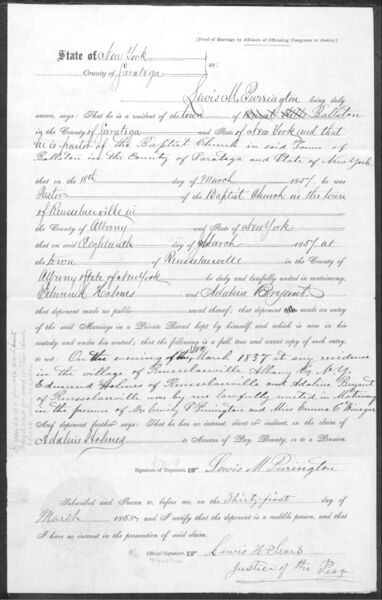 (Proof of Marriage by Affidavit of Officiating Clergyman or Justice.)
State of New York
County of Saratoga } ss:
Lewis M. Purrington being duly
sworn, says: That he is a resident of the town of Ballston
in the County of Saratoga and State of New York and that
he is pastor of the Baptist Church in said Town of
Ballston in the County of Saratoga and State of New York
that on the 18th day of March 1857, he was
Pastor of the Baptist Church in the town
of Rensselaerville in
the County of Albany and State of New York
that on said Eighteenth day of March 1857 at
the town of Rensselaerville in the County of
Albany & State of New York he duly and lawfully united in matrimony,
Edmund Holmes and Adaline Bryant
that deponent made no public record thereof; that deponent made an entry
of the said Marriage in a Private Record kept by himself, and which is now in his
custody and under his control; that the following is a full, true and correct copy of such entry,
to wit: On the evening of the 18th March 1857 at my residence
in the village of Rensselaerville Albany Co. N.Y.
Edmund Holmes of Rensselaerville and Adaline Bryant
of Rensselaerville was by me lawfully united in Matrimony
in the presence of Mrs Emily S Purrington and Miss Emma C
And deponent further says: That he has no interest, direct or indirect, in the claim of
Adaline Holmes to Arrears of Pay, Bounty, or to a Pension.
Signature of Deponent, Lewis M. Purrington
Subscribed and Sworn to before me, on the Thirty first day of
March 1865 and I certify that the deponent is a credible person, and that
I have no interest in the prosecution of said claim.
Official Signature, Lewis W. Sears
Justice of the Peace